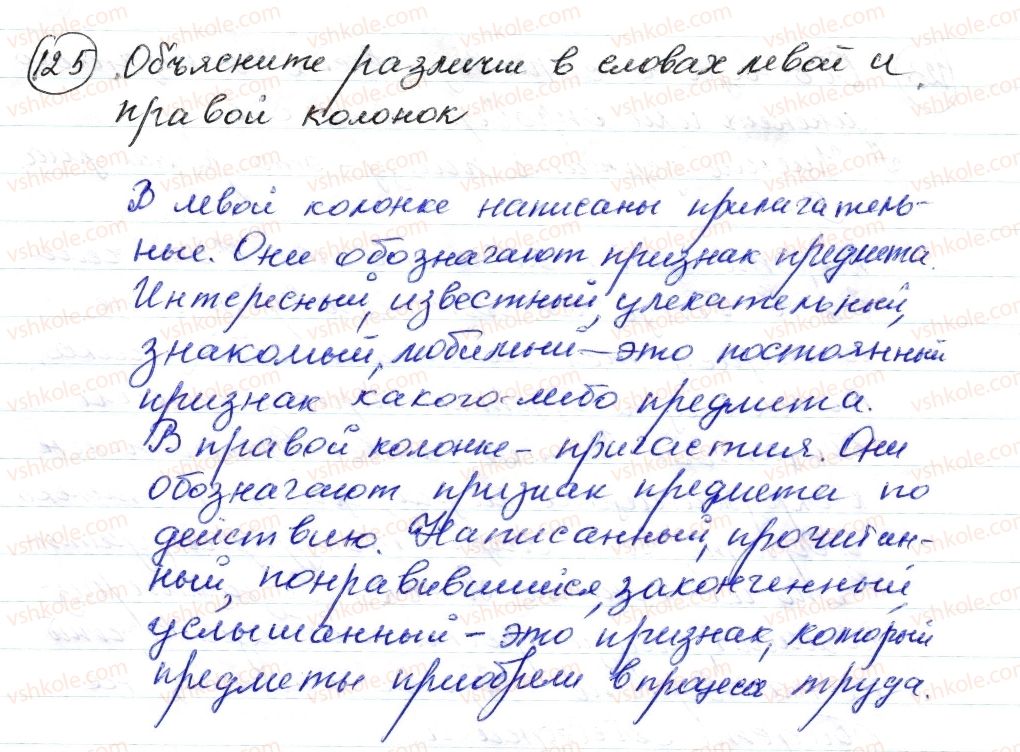 125 Объясните различие в словах левой и
правой колонок
В левой колонке написаны прилагатель-
ные. Они обозначают признак предмета.
Интересный, известный, увлекательный,
знакомый, любимый – это постоянный
признак какого-либо предмета.
В правой колонке – причастия. Они
обозначают признак предмета по
действию. Написанный, прочитан-
ный, понравившийся, законченный,
услышанный – это признак, который
предметы приобрели в процессе труда.
vshkole.com